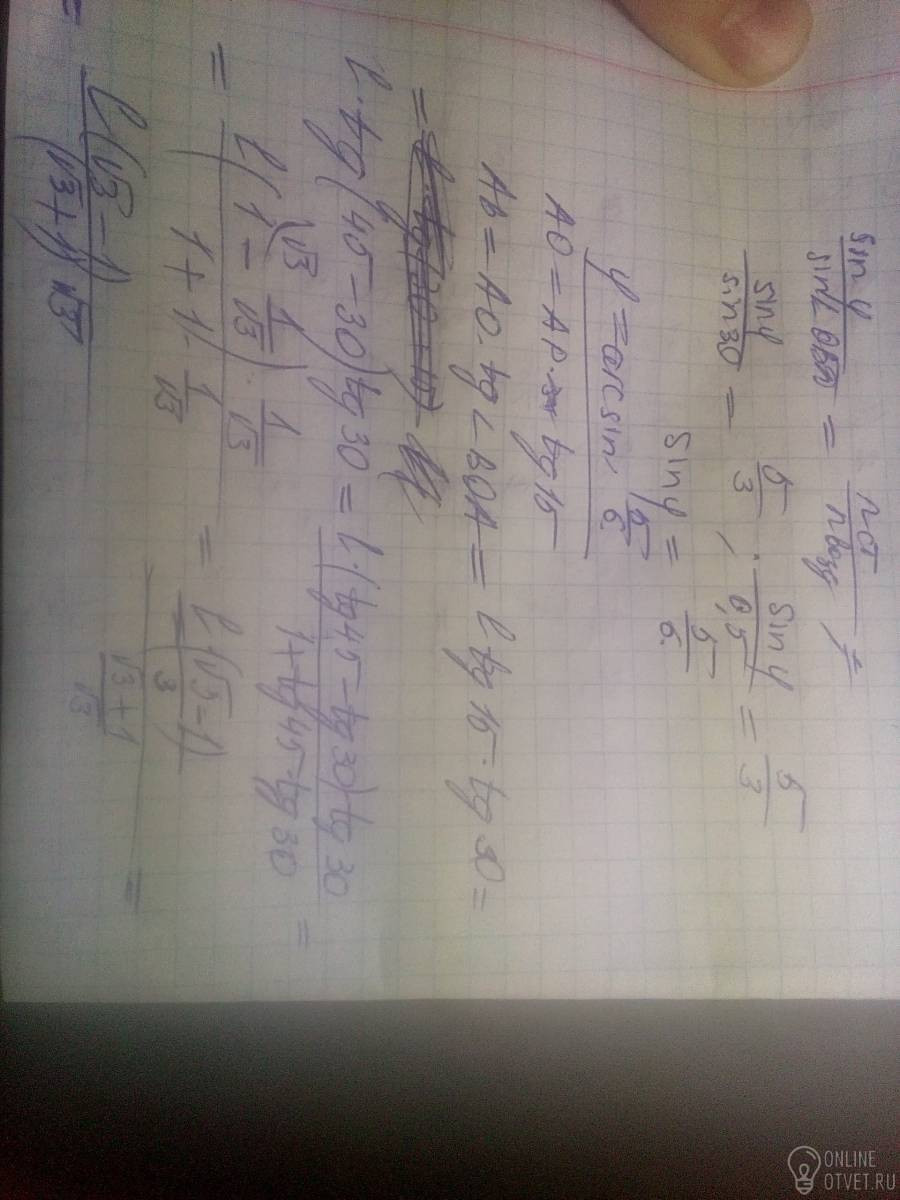 sin γ / sin∠ОВА = nст / nвозд
sin γ / sin 30 = 5/3, · sin γ / 0,5 = 5/3
sin γ = 5/6.
γ = arcsin 5/6.
AO = AP · tg 15
AB = AO · tg ∠BOA = l tg 15 · tg 30 =
l · tg(45-30) tg 30 = l·(tg45 - tg30) tg 30 / 1 + tg45 · tg 30 =
= l(1 - 1/√3) · 1/√3 / 1 + 1 · 1/√3 = l(√3-1) / 3
/ √3+1 / √3 =
= l(√3-1) / (√3+1)√3
ONLINE
OTVET.RU